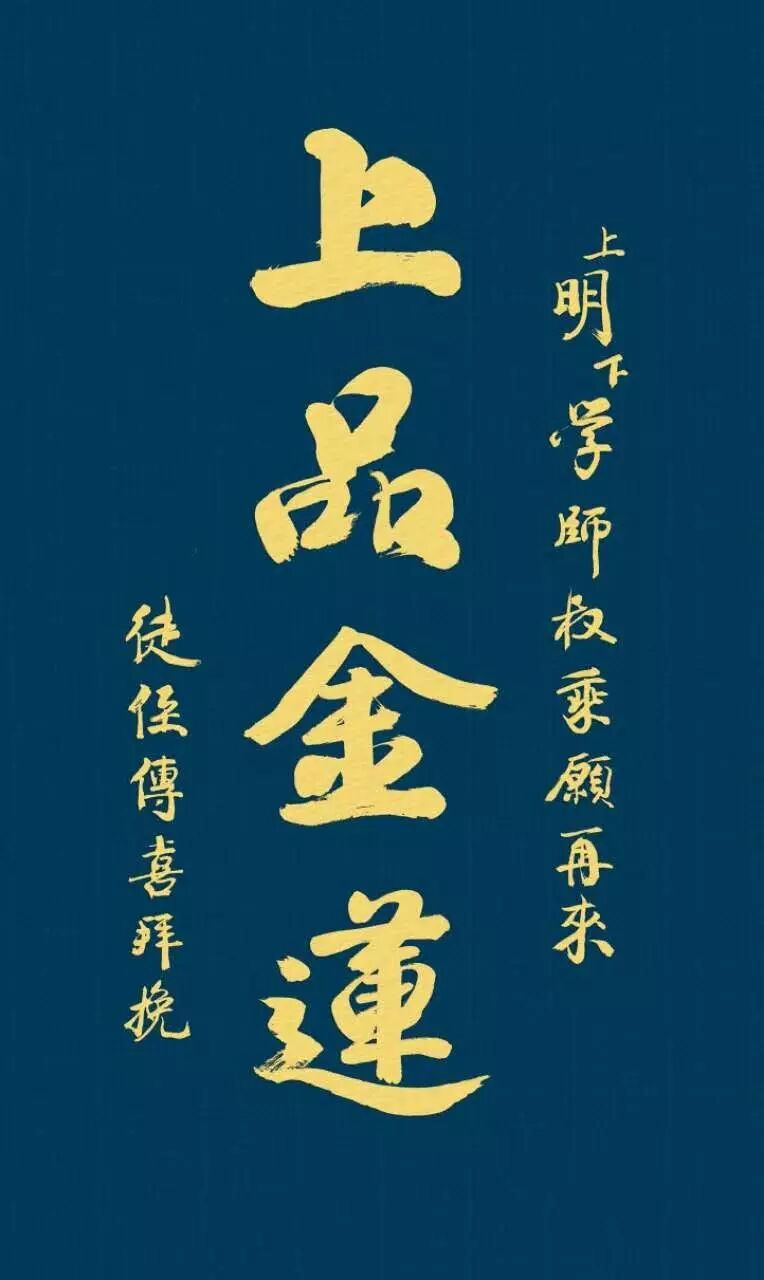 上明下学師叔乘願再來
上品金蓮
徒侄傳喜拜挽